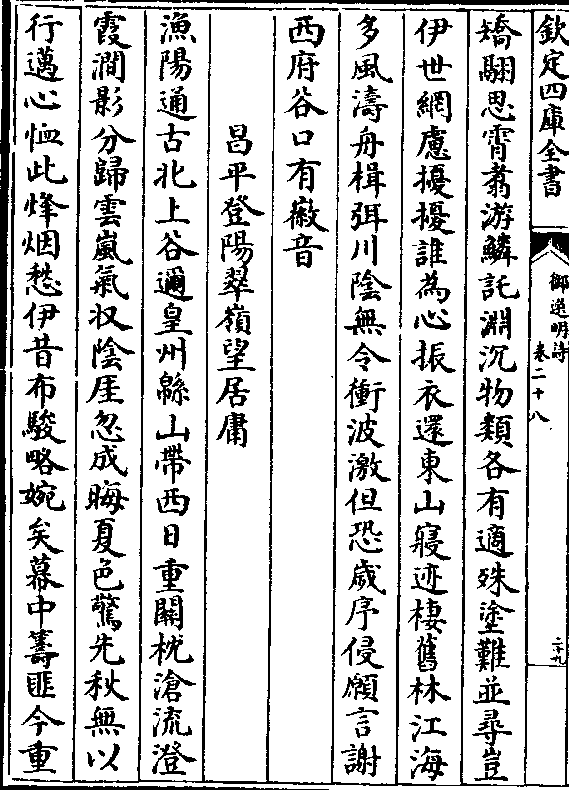 欽定四庫全書
御選明詩
卷二十八
二十九
矯翮思霄翥游鱗託淵沉物類各有適殊塗難並尋豈
伊世網慮擾擾誰為心振衣還東山寢迹棲舊林江海
多風濤舟楫弭川陰無令衝波激但恐歲序侵願言謝
西府谷口有徽音
昌平登陽翠嶺望居庸
漁陽通古北上谷邇皇州緜山帶西日重關枕滄流澄
霞澗影分歸雲嵐氣收陰厓忽成晦夏色驚先秋無以
行邁心恤此烽烟愁伊昔布駿略婉矣幕中籌匪今重